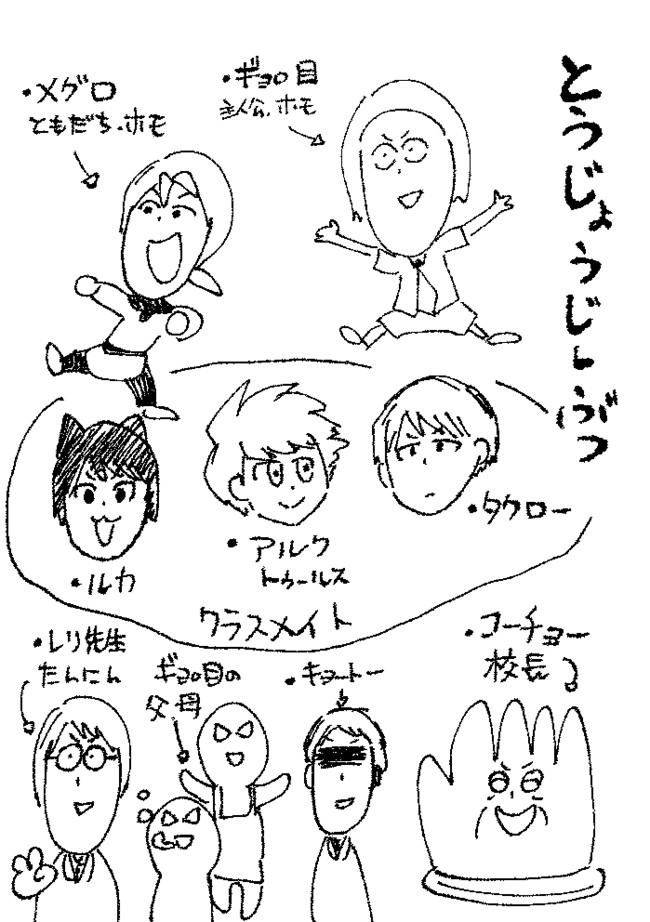 とうじょうじんぶつ
・ギョロ目
主人公.ホモ
・メグロ
ともだち.ホモ
・タクロー
・アルク
トゥールス
・ルカ
クラスメイト
・コーチョー
校長
・キョートー
ギョロ目の
父母
・レリ先生
たんにん